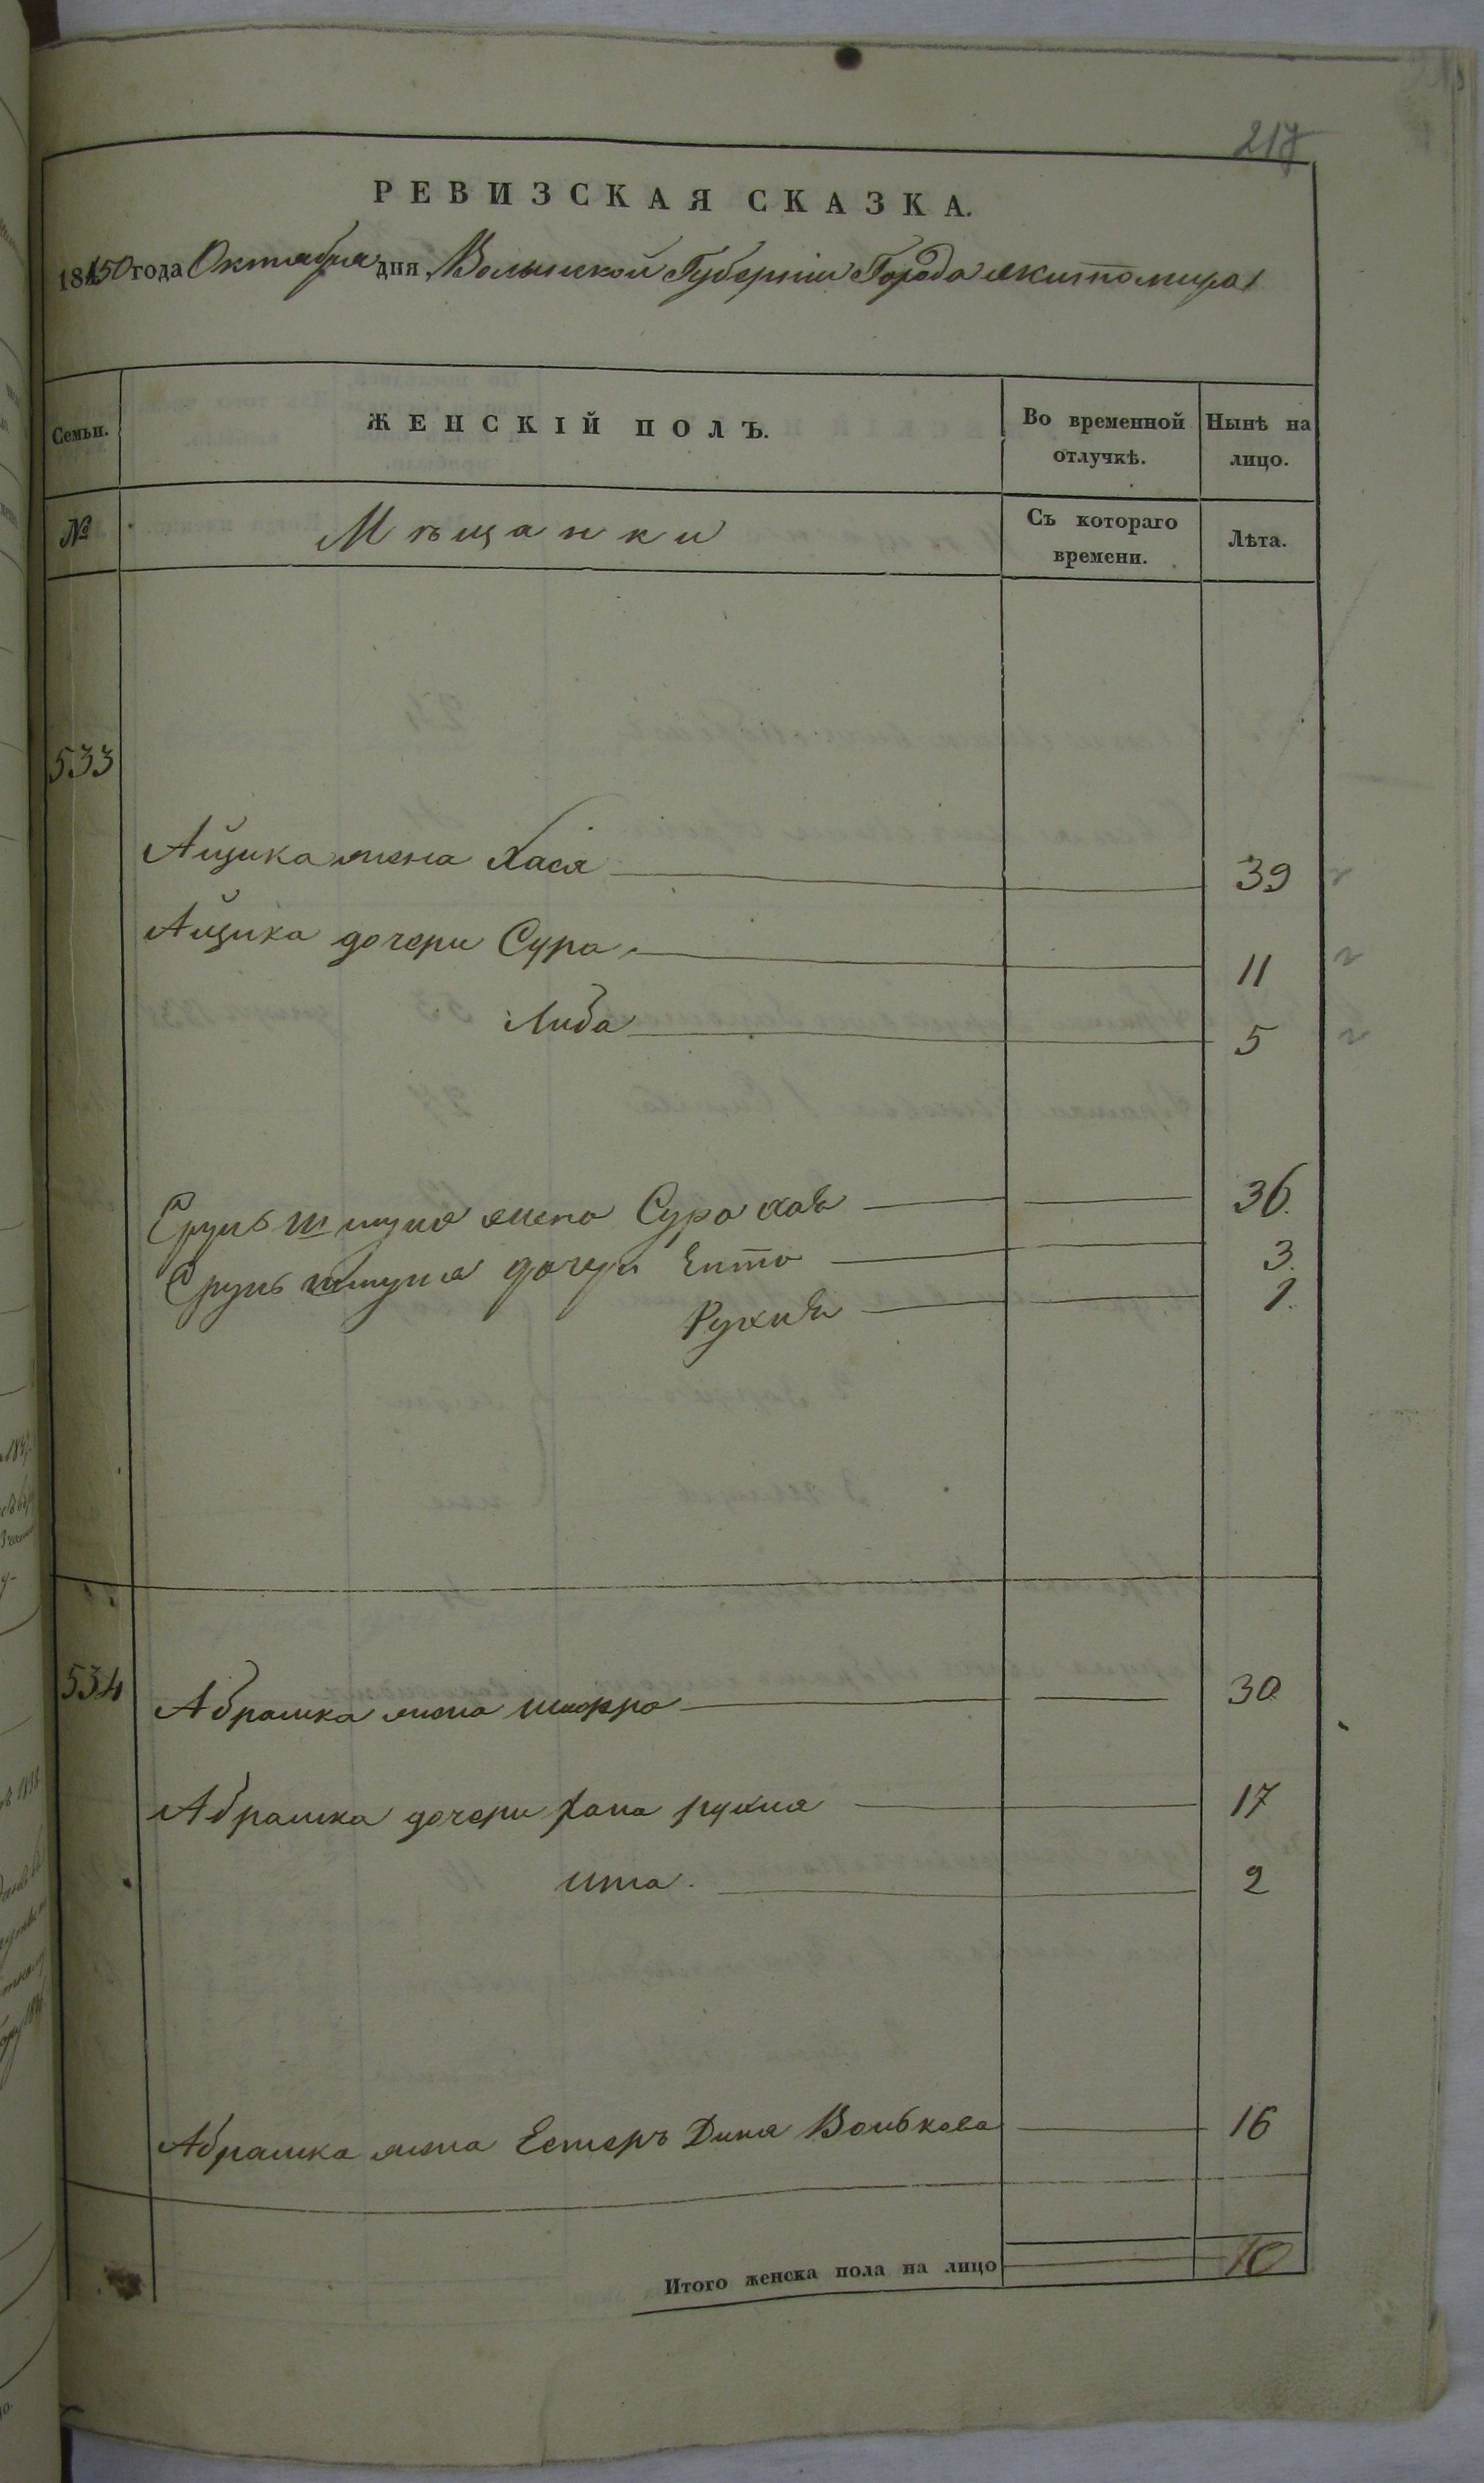 217
РЕВИЗСКАЯ СКАЗКА.
1850 года Октября дня, Волынской Губерніи Города Житомира
Семьи. ЖЕНСКІЙ ПОЛЪ. Во временной отлучкѣ. Нынѣ на лицо.
№ Мѣщанки Съ котораго времени. Лѣта.
533
Айцика жена Хася 39
Айцика дочери Сура 11
Либа 5
Сруль жена Сура Хая 36.
Сруль дочери Ента 3.
Рухля 1.
534 Абрашка жена 30
Абрашка дочери Хана рухля 17
ита. 2
Абрашка жена Естеръ Дина Волькова 16
Итого женска пола на лицо 10